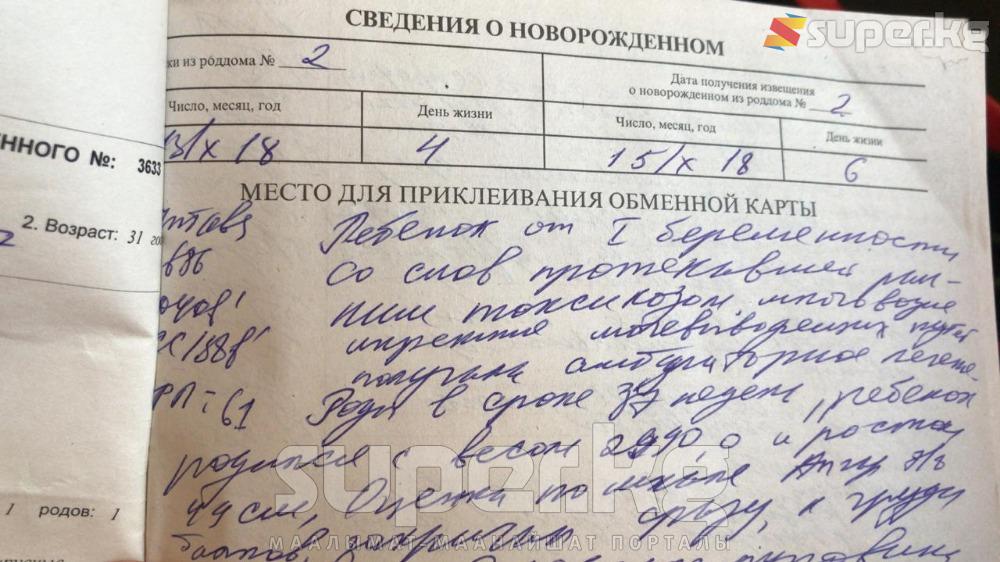 super.kg
СВЕДЕНИЯ О НОВОРОЖДЕННОМ
ки из роддома № 2
Дата получения извещения
о новорожденном из роддома № 2
Число, месяц, год
День жизни
Число, месяц, год
День жизни
13/X 18
4
15/X 18
6
ЕННОГО №: 3633
МЕСТО ДЛЯ ПРИКЛЕИВАНИЯ ОБМЕННОЙ КАРТЫ
2. Возраст: 31
Ребенок от I беременности
со слов протекавшей ран-
ним токсикозом многоводие
мочевыводящих путей
получала амбулаторное лечение
61 Роды в сроке 37 недель, ребенок
родился с весом 2990,0 и ростом
см, Оценка по шкале Апгар
баллов, сразу, к груди
super.kg
МААЛЫМАТ-МААНАЙШАТ ПОРТАЛЫ
1 родов: 1